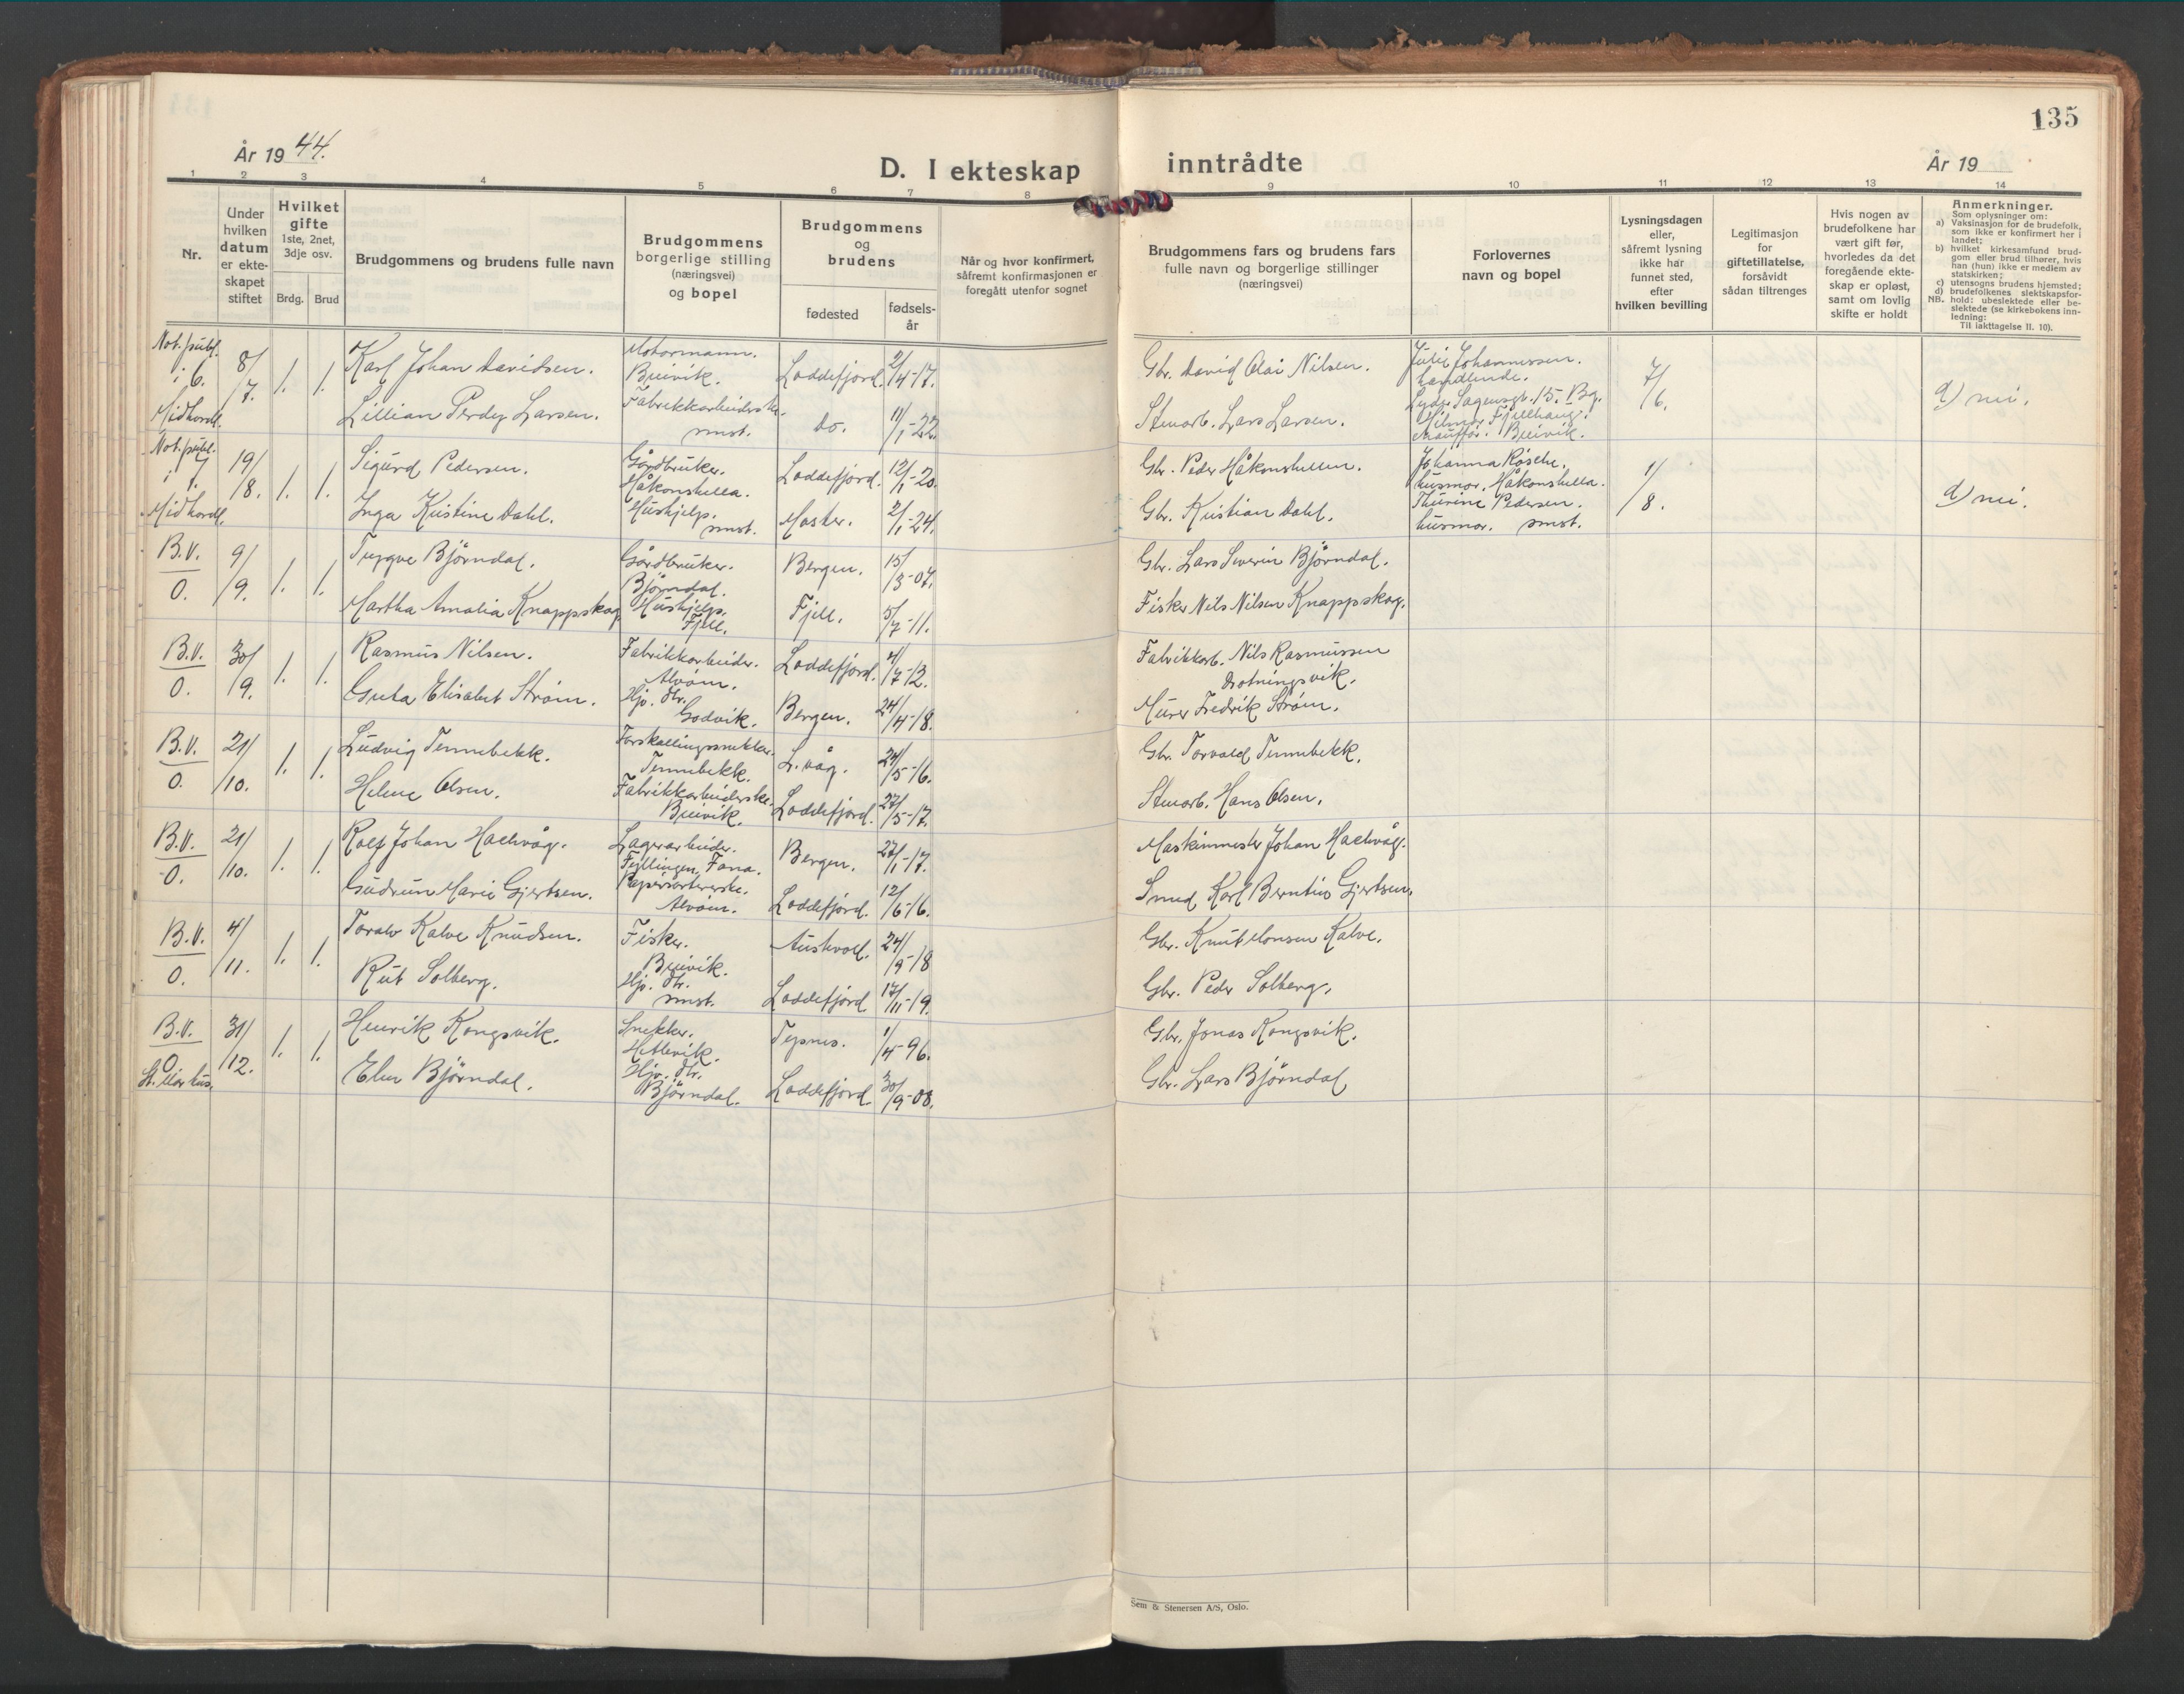 135
År 1944.
D. I ekteskap inntrådte
År 19
1 2 3 4 5 6 7 8 9 10 11 12 13 14
Nr.
Under hvilken datum er ekteskapet stiftet
Hvilket gifte
1ste, 2net, 3dje osv.
Brdg. Brud
Brudgommens og brudens fulle navn
Brudgommens borgerlige stilling (næringsvei) og bopel
Brudgommens og brudens
fødested
fødselsår
Når og hvor konfirmert, såfremt konfirmasjonen er foregått utenfor sognet
Brudgommens fars og brudens fars fulle navn og borgerlige stillinger (næringsvei)
Forlovernes navn og bopel
Lysningsdagen eller, såfremt lysning ikke har funnet sted, efter hvilken bevilling
Legitimasjon for giftetillatelse, forsåvidt sådan tiltrenges
Hvis nogen av brudefolkene har vært gift før, hvorledes da det foregående ekteskap er opløst, samt om lovlig skifte er holdt
Anmerkninger.
Som oplysninger om:
a) Vaksinasjon for de brudefolk, som ikke er konfirmert her i landet;
b) hvilket kirkesamfund brudgom eller brud tilhører, hvis han (hun) ikke er medlem av statskirken;
c) utensogns brudens hjemsted;
d) brudefolkenes slektskapsforhold: ubeslektede eller beslektede (se kirkebokens innledning:
NB.
Til iakttagelse II. 10).
Not. publ. i 6. Midhordl. 8/7. 1. 1. Karl Johan Davidsen. Motormann. Breivik. Loddefjord. 2/4-17. Gbr. David Olai Nilsen. Johannessen. handlende. 7/6. d) nei.
Lillian Perdy Larsen. Fabrikkarbeiderske. smst. do. 11/1-22. Stenarb. Lars Larsen. Lyder Sagensgt. 15. Bg. Hilmar Fjellhaug. Breivik.
Not. publ. i 7. Midhordl. 19/8. 1. 1. Sigurd Pedersen. Gårdbruker. Håkonshella. Loddefjord. 12/1-20. Gbr. Peder Håkonshellen. Johanna husmor. Håkonshella. 1/8. d) nei.
Inga Kristine Dahl. Hushjelp. smst. Master. 2/1-24. Gbr. Kristian Dahl. Thurine Pedersen. husmor. smst.
B.V. O. 9/9. 1. 1. Trygve Björndal. Gårdbruker. Björndal. Bergen. 15/3-07. Gbr. Lars Severin Björndal.
Martha Amalia Knappskog Hushjelp. Fjell. Fjell. 5/7-11. Fisker Nils Nilsen Knappskog.
B.V. O. 30/9. 1. 1. Rasmus Nilsen. Fabrikkarbeider. Alvøen. Loddefjord. 4/7-12. Fabrikkarb. Nils Rasmussen Drotningsvik.
Elisabet Strøm. Hjv. dtr. Godvik. Bergen. 24/4-18. Murer Fredrik Strøm.
B.V. O. 21/10. 1. 1. Ludvig Tennebekk. Forskallingssnekker. Tennebekk. L.våg. 24/5-16. Gbr. Torvald Tennebekk.
Helene Olsen. Fabrikkarbeiderske. Breivik. Loddefjord. 27/5-17. Stenarb. Hans Olsen.
B.V. O. 21/10. 1. 1. Rolf Johan Haelvåg. Lagerarbeider. Fyllingen, Fana. Bergen. 27/1-17. Maskinmester Johan Haelvåg.
Gudrun Marie Gjertsen. Papirsortererske. Alvøen. Loddefjord. 12/6-16. Smed Karl Berntius Gjertsen.
B.V. O. 4/11. 1. 1. Toralv Kalve Knudsen. Fisker. Breivik. Austevoll. 24/9-18 Gbr. Knut Monsen Kalve.
Rut Solberg. Hjv. dtr. smst. Loddefjord 17/11-19. Gbr. Peder Solberg.
B.V. O St. Mar. hus. 31/12. 1. 1. Henrik Kongsvik. Snekker. Hetlevik. Tysnes. 1/4-96. Gbr. Jonas Kongsvik.
Elen Björndal. Hjv. dtr. Björndal. Loddefjord. 30/9-08. Gbr. Lars Björndal
Sem & Stenersen A/S, Oslo.